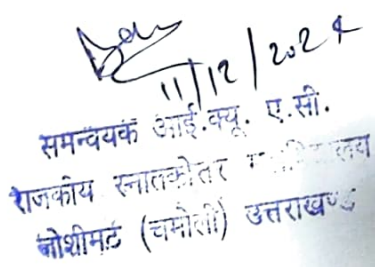 11/12/2024
समन्वयक आई.क्यू. ए.सी.
राजकीय स्नातकोत्तर
जोशीमठ (चमोली) उत्तराखण्ड